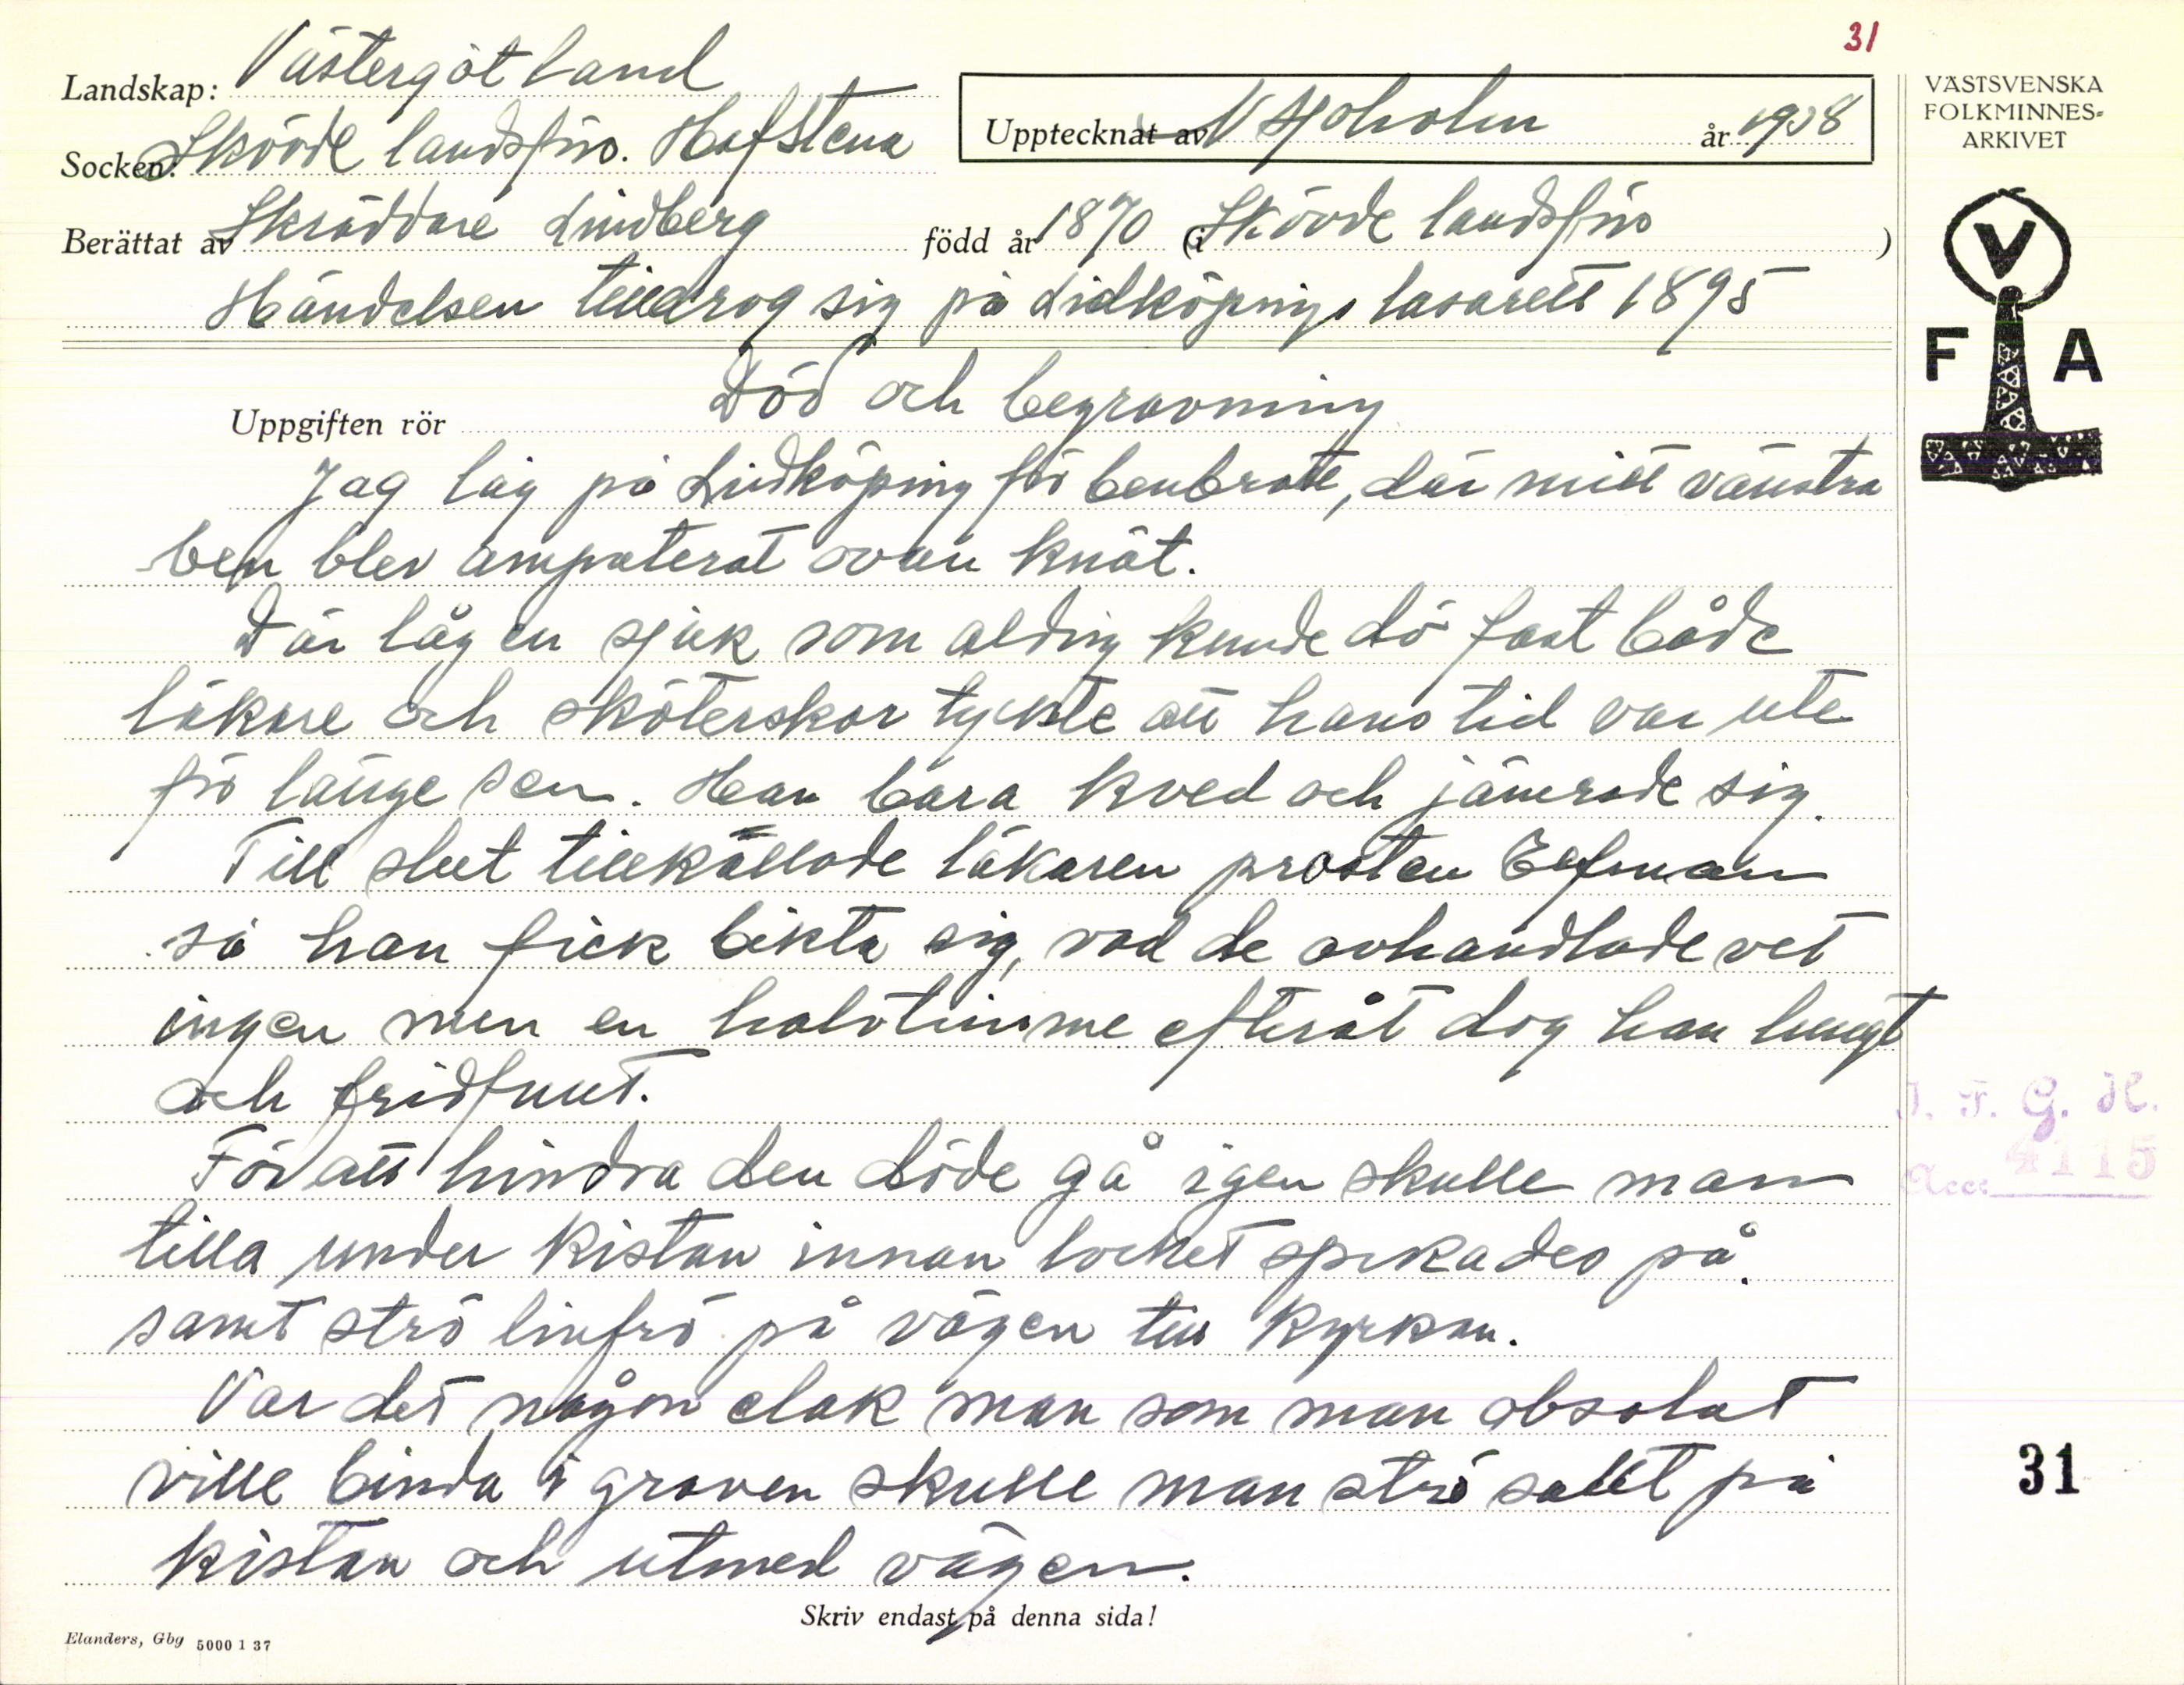 31
Landskap: Västergötland
Socken: Skövde landsförs. Hafstena
Upptecknat av N Sjöholm år 1938
Berättat av Skräddare Lindberg född år 1870 (i Skövde landsförs )
Händelsen tilldrog sig på Lidköpings lasarett 1895
Uppgiften rör Död och begravning
Jag låg på Lidköping för benbrott, där mitt vänstra
ben blev amputerat ovan knät.
Där låg en sjuk som alding kunde dö fast både
läkare och sköterskor tyckte att hans tid var ute
för länge sen. Han bara kved och jämrade sig.
Till slut tillkallade läkaren prosten Elfman
så han fick bikta sig, vad de avhandlade vet
ingen men en halvtimme efteråt dog han lungt
och fridfuut.
För att hindra den döde gå igen skulle man
tilla under kistan innan locket spikades på.
samt strö linfrö på vägen till kyrkan.
Var det någon elak man som man absolut
ville binda i graven skulle man strö salt på
kistan och utmed vägen.
Skriv endast på denna sida!
Elanders, Gbg 5000 1 37
VÄSTSVENSKA
FOLKMINNES-
ARKIVET
V
F A
I. F. G. H.
Acc: 4115
31